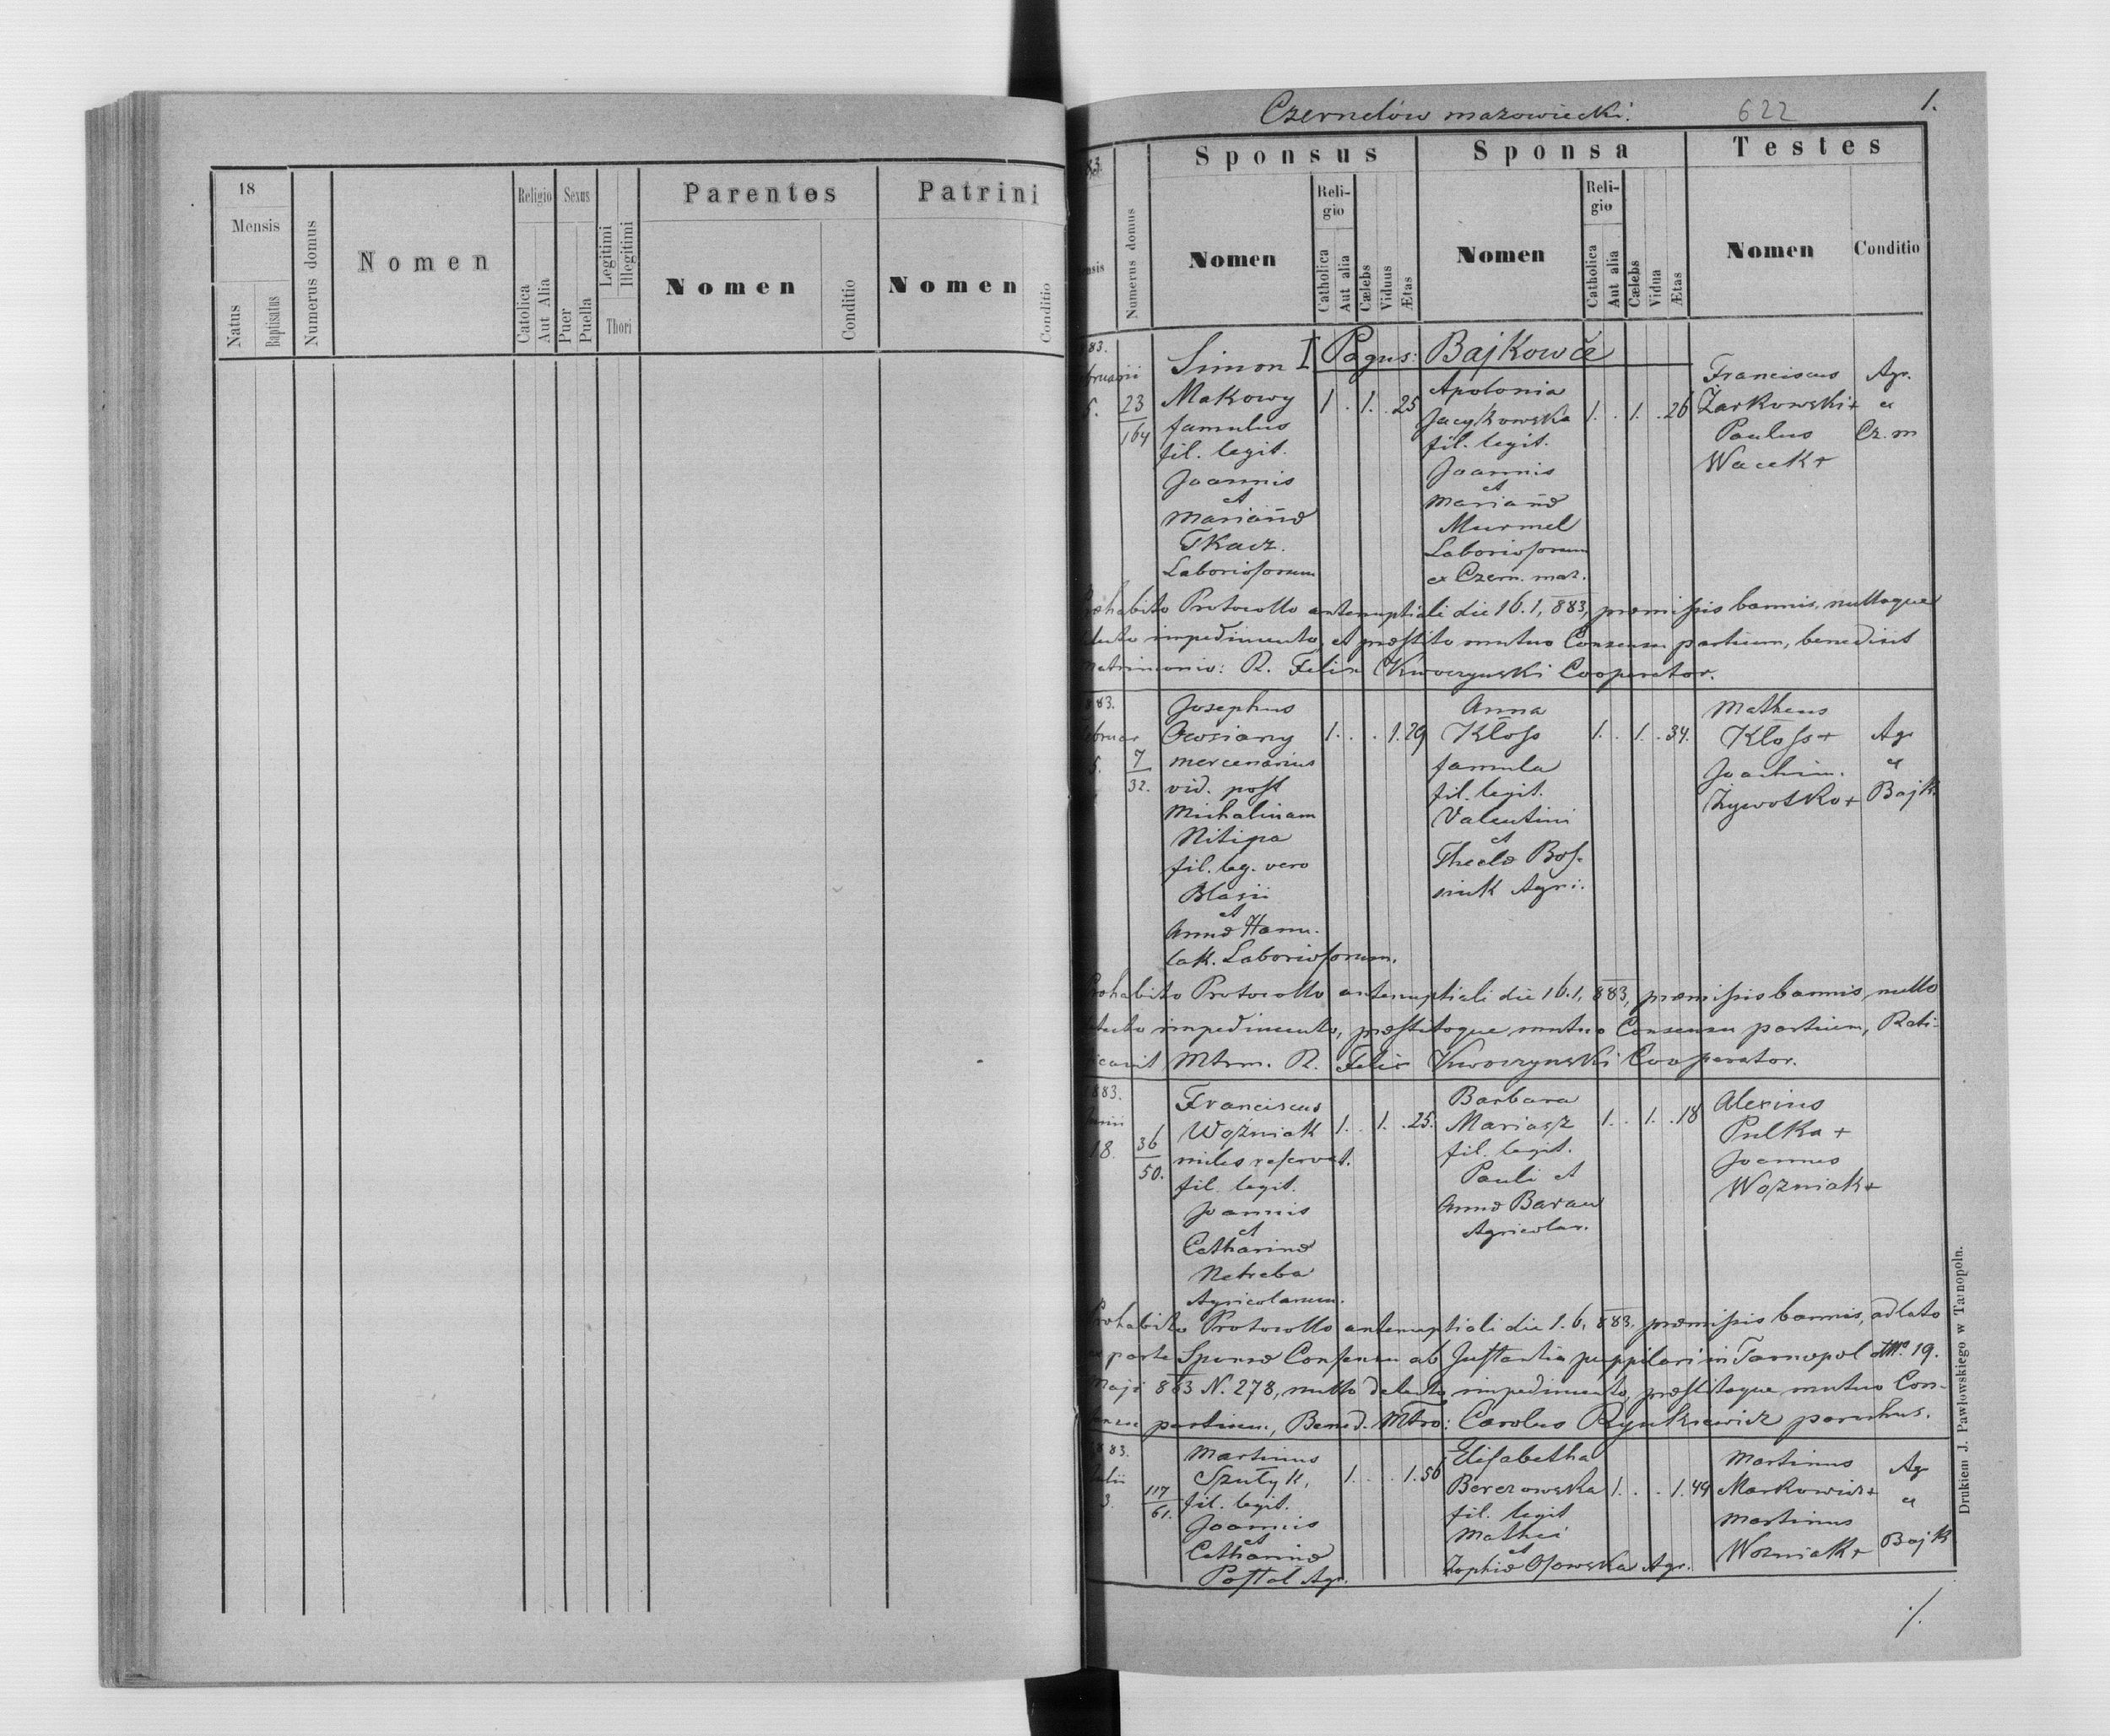 18
Mensis
Natus
Baptisatus
Numerus domus
Nomen
Religio
Catolica
Aut Alia
Sexus
Puer
Puella
Legitimi
Illegitimi
Thori
Parentes
Nomen
Conditio
Patrini
Nomen
Conditio
Czernelów mazowiecki.
622
1.
Numerus domus
Sponsus
Nomen
Reli-
gio
Catholica
Aut alia
Cælebs
Viduus
Ætas
Sponsa
Nomen
Reli-
gio
Catholica
Aut alia
Cælebs
Vidua
Ætas
Testes
Nomen
Conditio
Pagus: Bajkowce
83.
bruarii
5.
23
164
Simon
Makowy
famulus
fil. legit.
Joannis
et
Marianæ
Tkacz.
Laboriosorum
1 . 1. . 25
Apolonia
Jacykowska
fil. legit.
Joannis
et
Mariañæ
Murmel
Laboriosorum
ex Czern. maz.
1. . 1. . 26
Franciscus
Żarkowski+
Paulus
Wacek+
Agr.
et
Cz. m
Præhabito Protocollo antenuptiali die 16. 1, 883, præmissis bannis, nulloque
impedimento, et præstito mutuo Consensu partium, benedixit
Matrimonio: R. Felix Kwoczynski Cooperator.
83.
Februar
5.
7
32.
Josephus
Owsiany
mercenarius
vid. post
Michalinam
Nitipa
fil. leg. vero
Blasii
et
Annæ Hanu-
lak. Laboriosorum.
1. . . 1. 29
Anna
Kłoss
famula
fil. legit.
Valentini
et
Theclæ Bos-
niuk Agri.
1. . 1. . 34.
Matheus
Kłoss+
Joachim.
Żywotko+
Agr
et
Bajk.
Prohabito Protocollo antenuptiali die 16. 1, 883, præmissis bannis, nullo
impedimento, præstitoque mutuo Consensu partium, Rati-
ficavit Mtrm. R. Felix Kwoczynski Cooperator.
1883.
Junii
18.
36
50.
Franciscus
Woźniak
miles reservat.
fil. legit.
Joannis
et
Catharinæ
Netreba
Agricolarum.
1. . 1. . 25.
Barbara
Mariasz
fil. legit.
Pauli et
Annæ Baran
Agricolar.
1. . 1. . 18
Alexius
Pulka +
Joannes
Woźniak+
Præhabito Protocollo antenuptiali die 1. 6, 883. præmissis bannis, adlato
ex parte Sponsæ Consensu ab Justantia puppilari in Tarnopol 19.
Maji 883 N. 278, nullo detecto impedimento, præstitoque mutuo Con-
sensu partium, Bened. Mtro: Carolus Rynkiewicz parochus.
1883.
Julii
3.
117
61.
Martinus
Szułyk,
fil. legit.
Joannis
et
Catharinæ
Postol Agr.
1. . . 1. 56
Elisabetha
Berezowska
fil. legit
Mathei
et
Zophiæ Osowska Agr.
1. . . 1. 49
Martinus
Markowicz+
Martinus
Wozniak+
Ag
et
Bajk
Drukiem J. Pawłowskiego w Tarnopoln.
./.